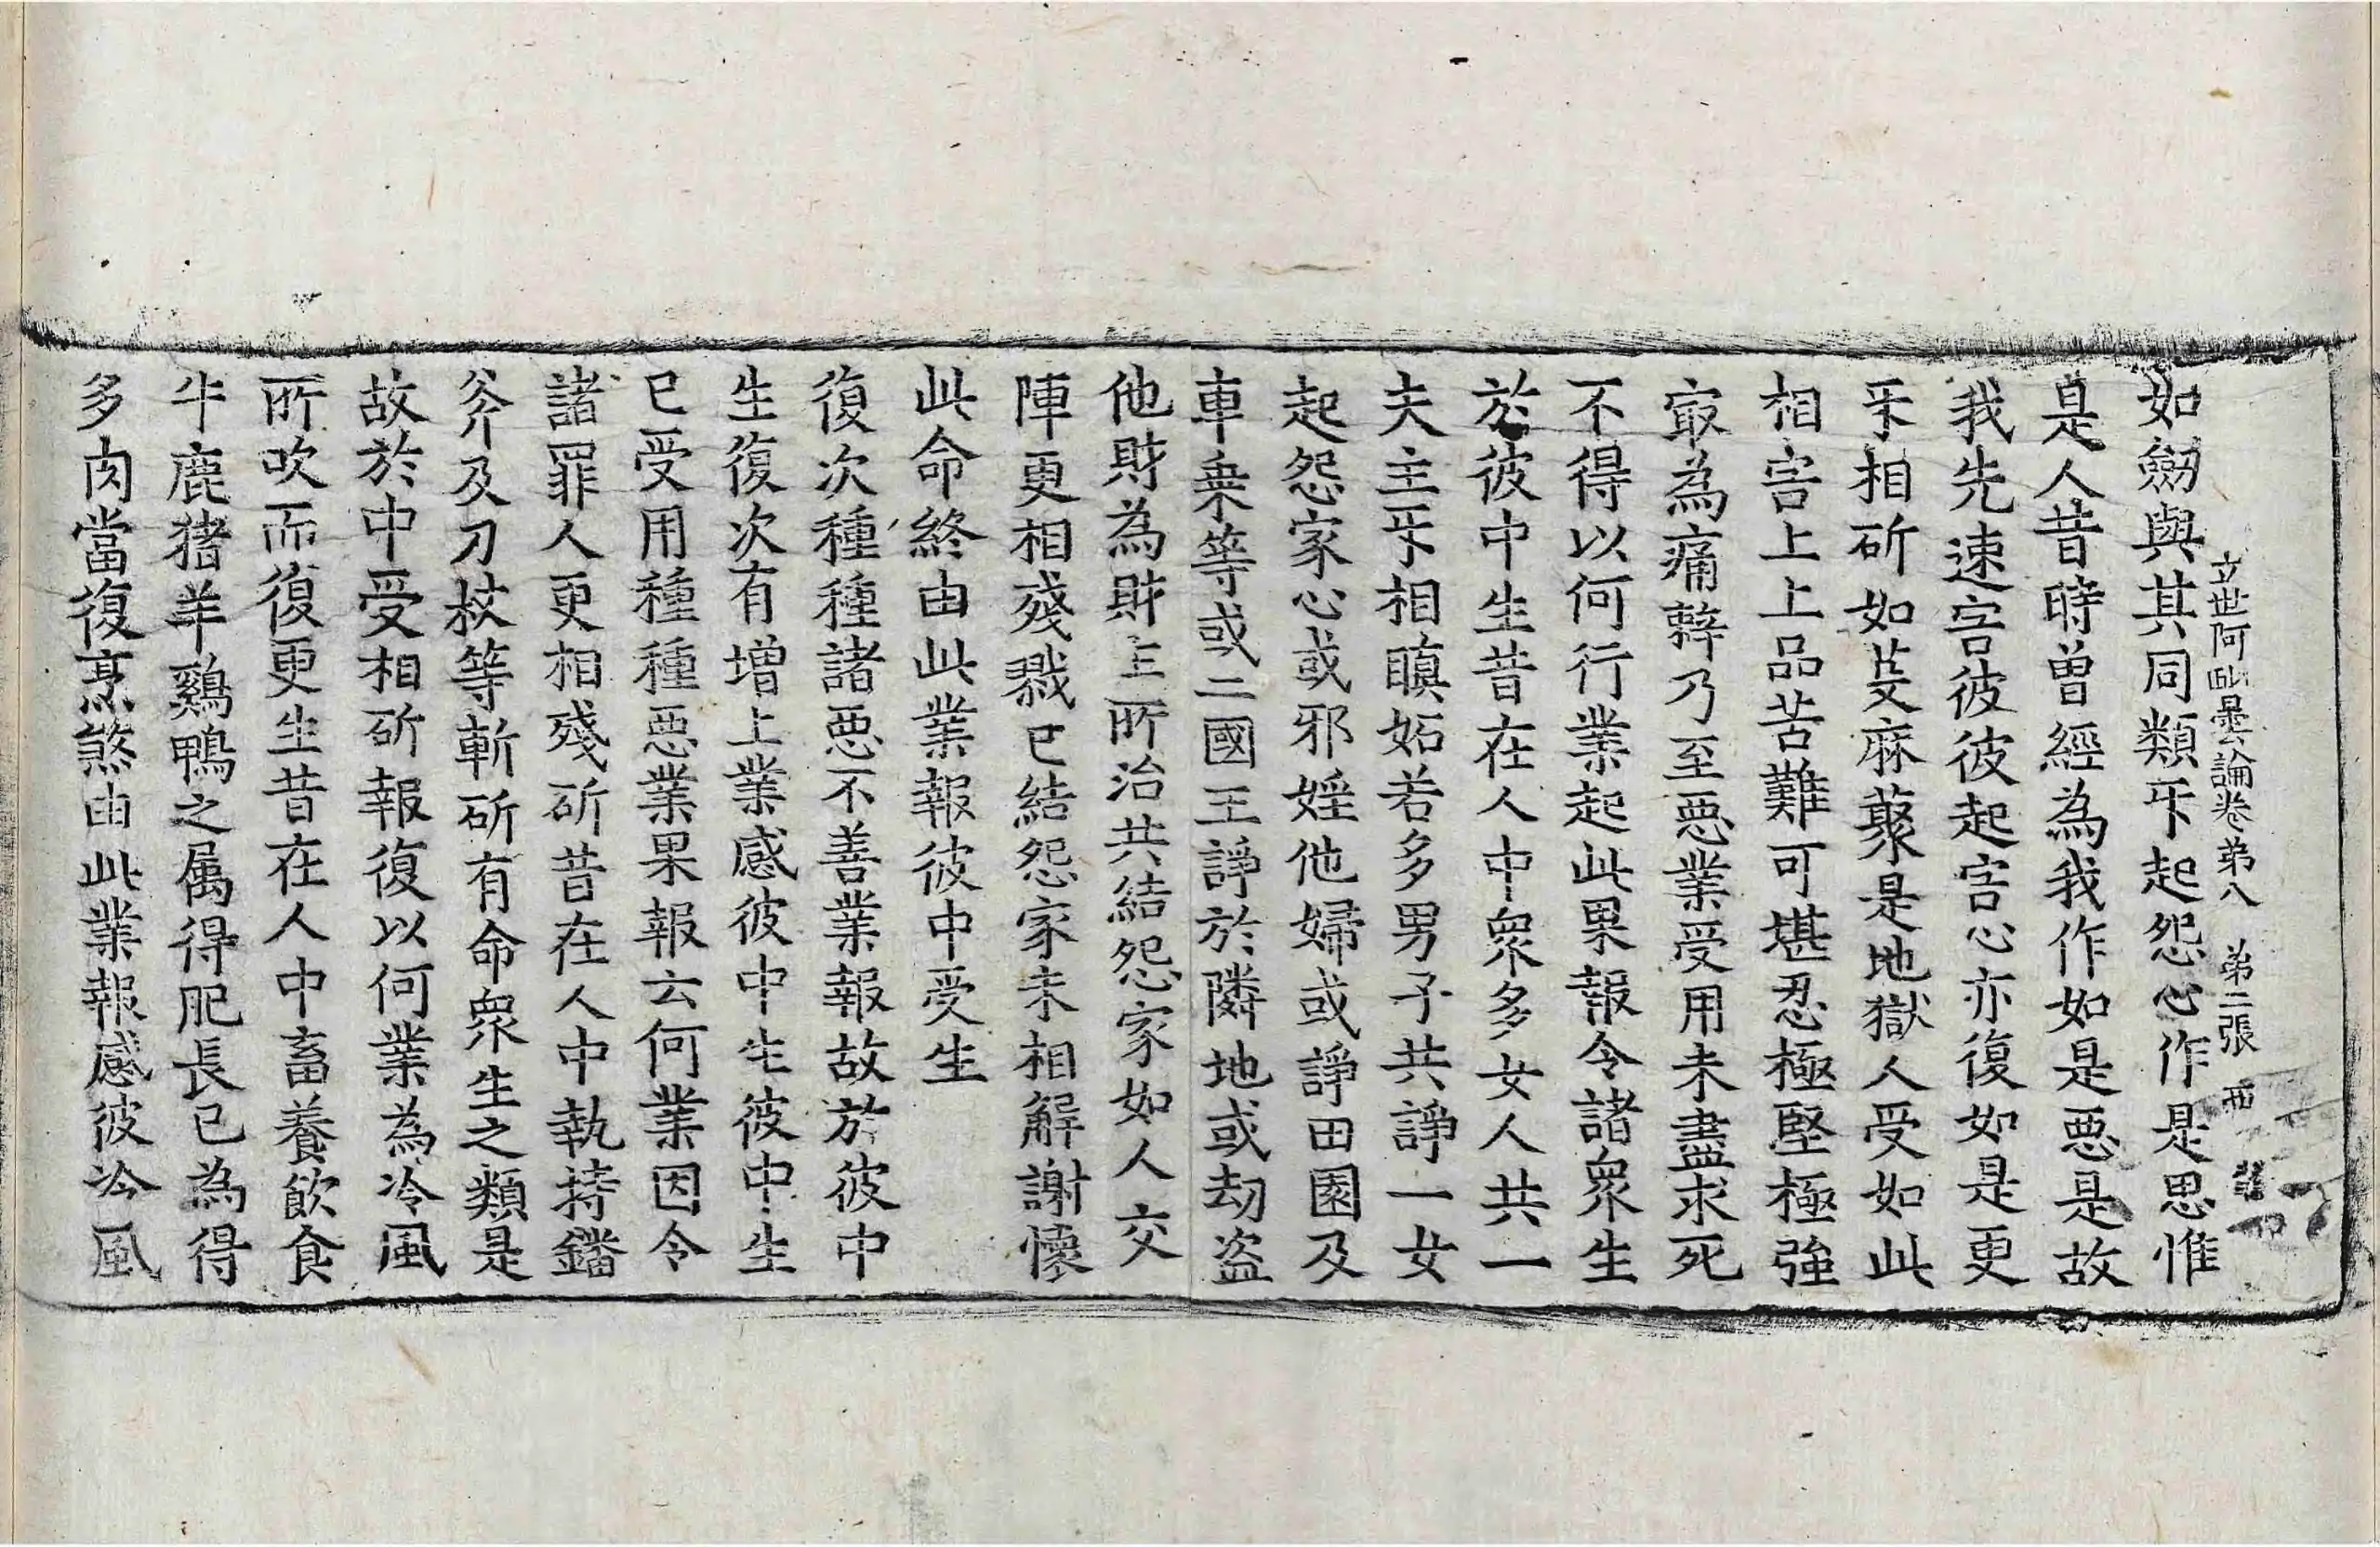 立世阿毗曇論卷第八　第二張　西
如劒與其同類㸦起怨心作是思惟
是人昔時曾經為我作如是惡是故
我先速害彼彼起害心亦復如是更
㸦相斫如芟麻藂是地獄人受如此
相害上上品苦難可堪忍極堅極強
㝡為痛辢乃至惡業受用未盡求死
不得以何行業起此果報令諸衆生
於彼中生昔在人中衆多女人共一
夫主㸦相瞋妬若多男子共諍一女
起怨家心或邪婬他婦或諍田園及
車乗等或二國王諍於隣地或劫盗
他財為財主所治共結怨家如人交
陣更相殘戮已結怨家未相解謝懷
此命終由此業報彼中受生
復次種種諸惡不善業報故於彼中
生復次有增上業感彼中生彼中生
已受用種種惡業果報云何業因令
諸罪人更相殘斫昔在人中執持鐇
斧及刀杖等斬斫有命衆生之類是
故於中受相斫報復以何業為冷風
所吹而復更生昔在人中畜養飲食
牛鹿猪羊鷄鴨之属得肥長已為得
多肉當復烹煞由此業報感彼冷風